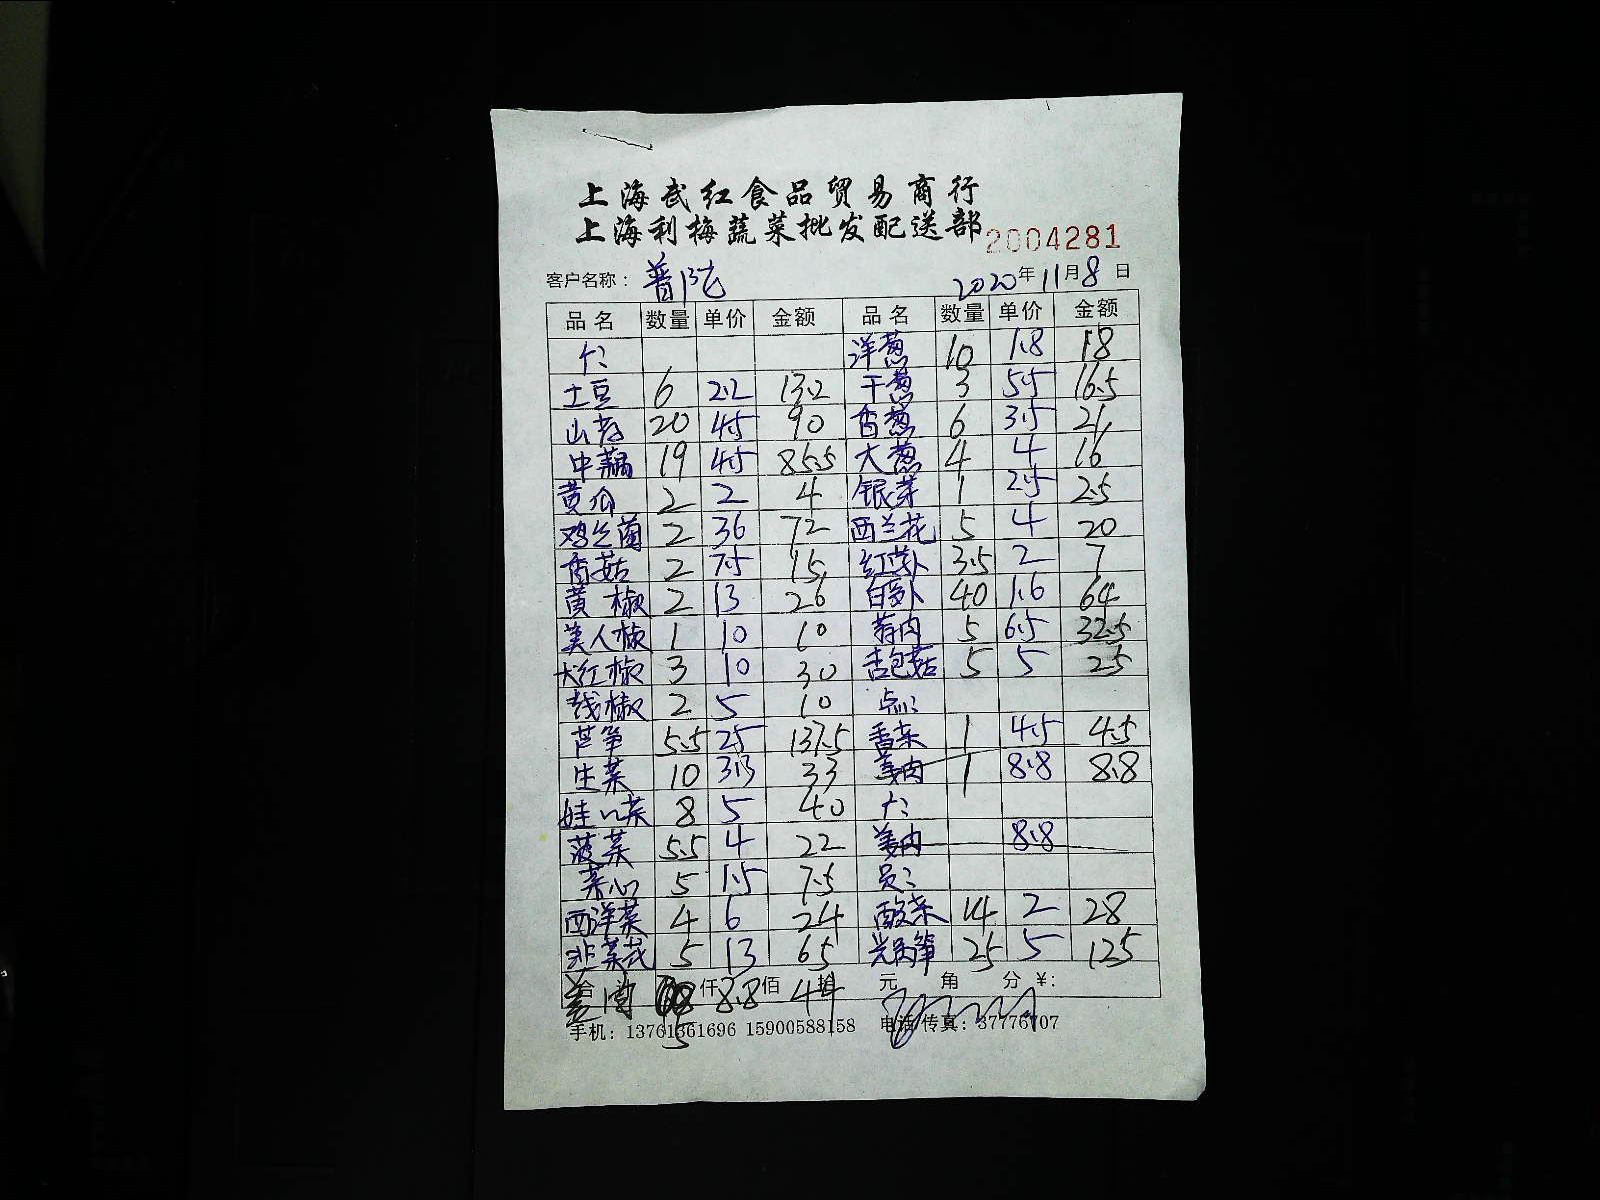 上海武红食品贸易商行
上海利梅蔬菜批发配送部 2004281
客户名称：普陀 2020年11月8日
品名 数量 单价 金额 品名 数量 单价 金额
洋葱 10 1.8 18
土豆 6 2.2 13.2 干葱 3 5.5 16.5
山药 20 4.5 90 香葱 6 3.5 21
中藕 19 4.5 85.5 大葱 4 4 16
黄瓜 2 2 4 银芽 1 2.5 2.5
鸡纵菌 2 36 72 西兰花 5 4 20
香菇 2 7.5 15 红萝卜 3.5 2 7
黄椒 2 13 26 白萝卜 40 1.6 64
美人椒 1 10 10 蒜肉 5 6.5 32.5
大红椒 3 10 30 杏包菇 5 5 25
线椒 2 5 10 点:
芦笋 5.5 25 137.5 香菜 1 4.5 4.5
生菜 10 3.3 33 姜肉 1 8.8 8.8
娃娃菜 8 5 40
菠菜 5.5 4 22 姜肉 8.8
菜心 5 1.5 7.5
西洋菜 4 6 24 酸菜 14 2 28
韭菜花 5 13 65 25 5 125
合 仟 佰 拾 元 角 分 ¥:
姜肉 5 8.8 44
手机：13761361696 15900588158 电话/传真：37776707